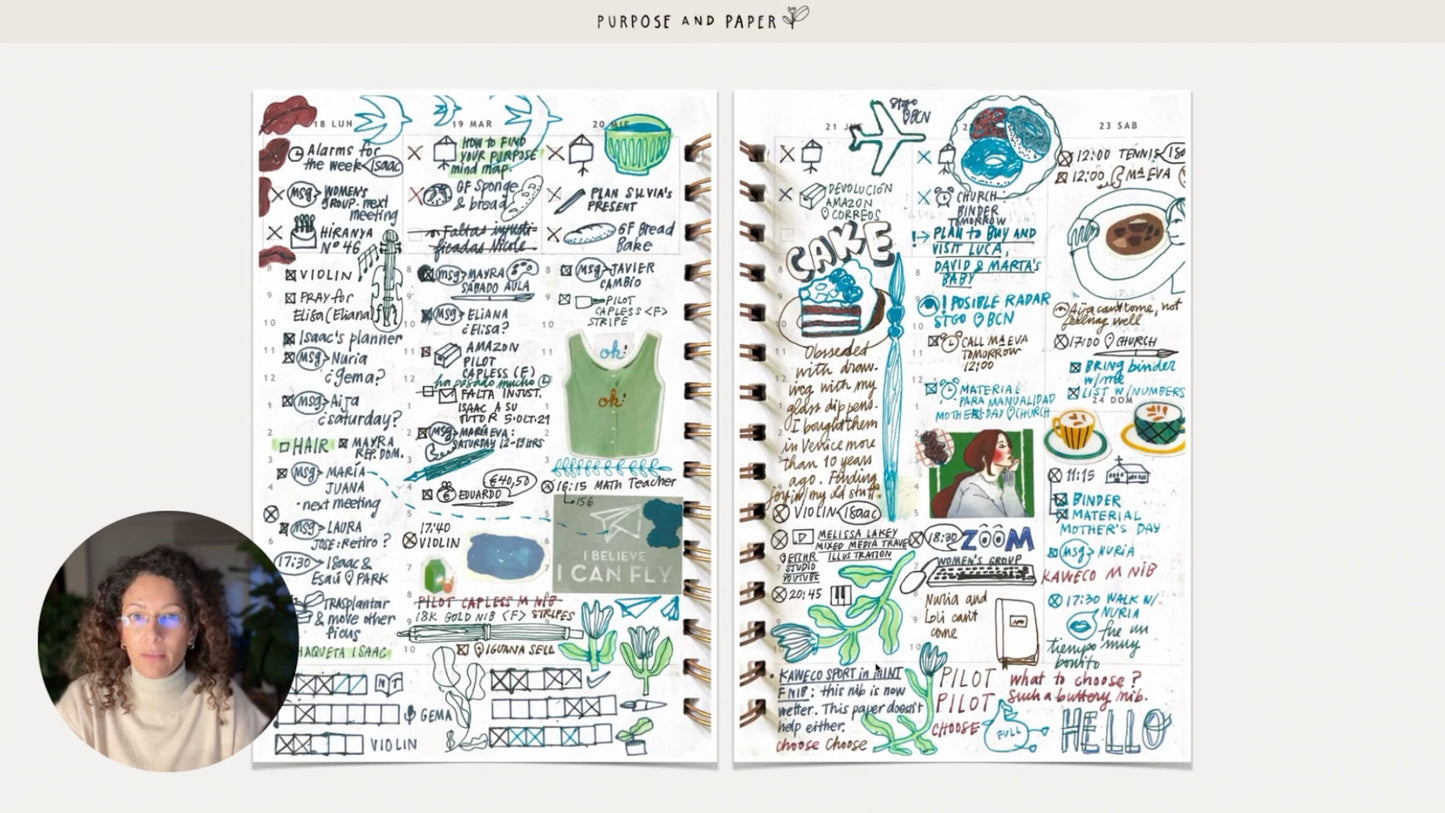 PURPOSE AND PAPER
18 LUN
Alarms for
the week Isaac
msg WOMEN'S
GROUP. next
meeting
HIRANYA
Nº 46
VIOLIN
PRAY for
Elisa (Eliana)
Isaac's planner
msg Nuria
¿Gema?
msg Aija
¿Saturday?
HAIR
MAYRA
REP. DOM.
msg MARÍA
JUANA
·next meeting
msg LAURA
JOSE: Retiro?
17:30 ISaac &
Esaú PARK
TRASplantar
& move other
ficus
HAQUETA ISAAC
NT
GEMA
VIOLIN
19 MAR
HOW to FIND
YOUR PURPOSE
mind map.
GF Sponge
& bread
Faltas injusti-
ficadas Nicole
msg MAYRA
SÁBADO AULA
msg ELIANA
¿Elisa?
AMAZON
PILOT
CAPLESS (F)
ha pasado mucho
FALTA INJUST.
ISAAC A SU
TUTOR 5·OCT·21
msg MARÍA EVA:
SATURDAY 12-13HRS
€40,50
EDUARDO
17:40
VIOLIN
PILOT CAPLESS M NIB
18K GOLD NIB <F> STRIPES
IGUANA SELL
20 MIE
PLAN SILVIA'S
PRESENT
GF Bread
Bake
msg JAVIER
CAMBIO
PILOT
CAPLESS <F>
STRIPE
oh!
oh!
16:15 MATH Teacher
15€
I BELIEVE
I CAN FLY
21
STGO
BCN
DEVOLUCIÓN
AMAZON
CORREOS
CAKE
Obsessed
with draw-
ing with my
glass dip pens.
I bought them
in Venice more
than 10 years
ago. Finding
joy in my old stuff.
VIOLIN Isaac
MELISSA LAKEY
MIXED MEDIA TRAVE
ILLUSTRATION
ETCHR
STUDIO
YOUTUBE
20:45
KAWECO SPORT in MINT
F NIB: this nib is now
wetter. This paper doesn't
help either.
choose Choose
CHURCH
BINDER
TOMORROW
PLAN to BUY AND
VISIT LUCA,
DAVID & MARTA'S
BABY
! POSIBLE RADAR
STGO BCN
CALL Mª EVA
TOMORROW
12:00
MATERIAL
PARA MANUALIDAD
MOTHER'S DAY CHURCH
18:30 ZOOM
WOMEN'S GROUP
Nuria and
Loli can't
come
PILOT
PILOT
CHOOSE
FULL
23 SAB
12:00 TENNIS
12:00 Mª EVA
Aija can't come, not
feeling well
17:00 CHURCH
BRING binder
w/me
LIST W/NUMBERS
24 DOM
11:15
BINDER
MATERIAL
MOTHER'S DAY
msg NURIA
KAWECO M NIB
17:30 WALK W/
NURIA
fue un
tiempo muy
bonito
What to choose?
Such a buttery nib.
HELLO